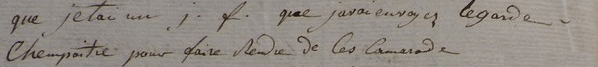 que jetai un j. f. que javai envoyez legarde-
Chempaitre pour faire Rendre de Ces Camarade